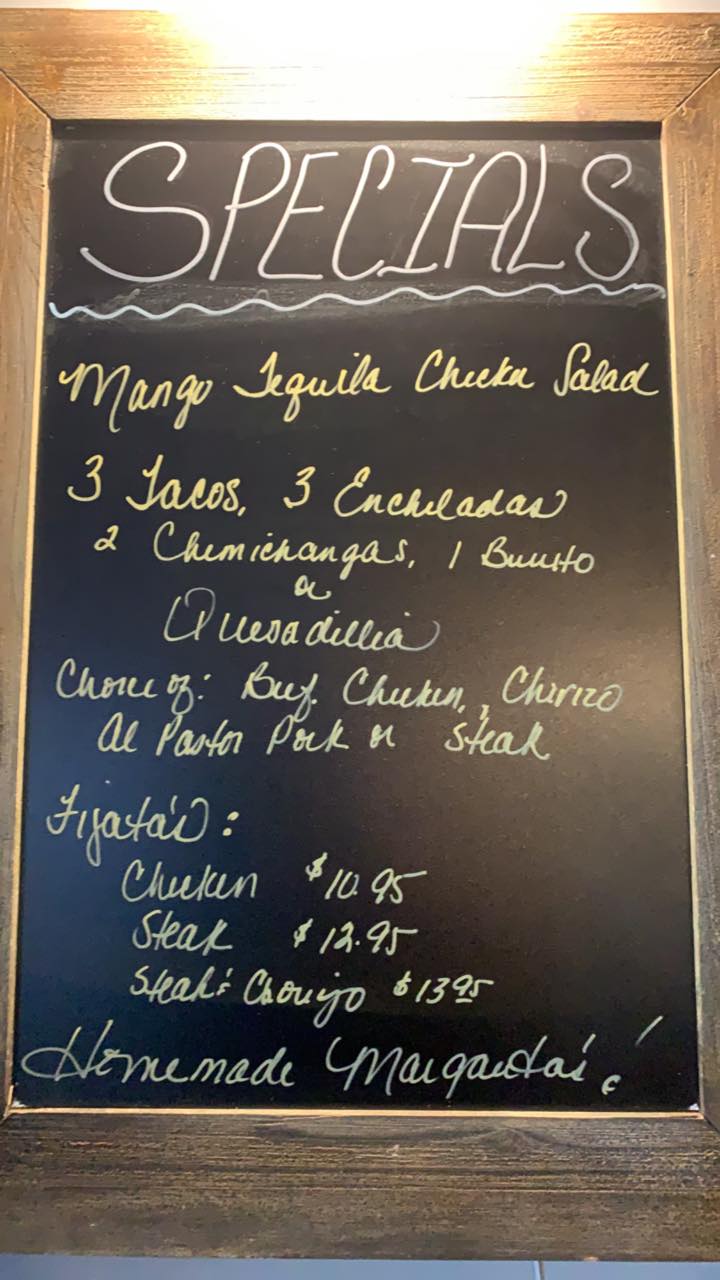 SPECIALS
Mango Tequila Chicken Salad
3 Tacos, 3 Encheladas
2 Chemichangas, 1 Burrito
or
Quesadillia
Choice of: Beef. Chicken, Chirizo
Al Pastor Pork or Steak
Fijata's:
Chicken $10.95
Steak $12.95
Steak & Chorizo $13.95
Homemade Margarita's!